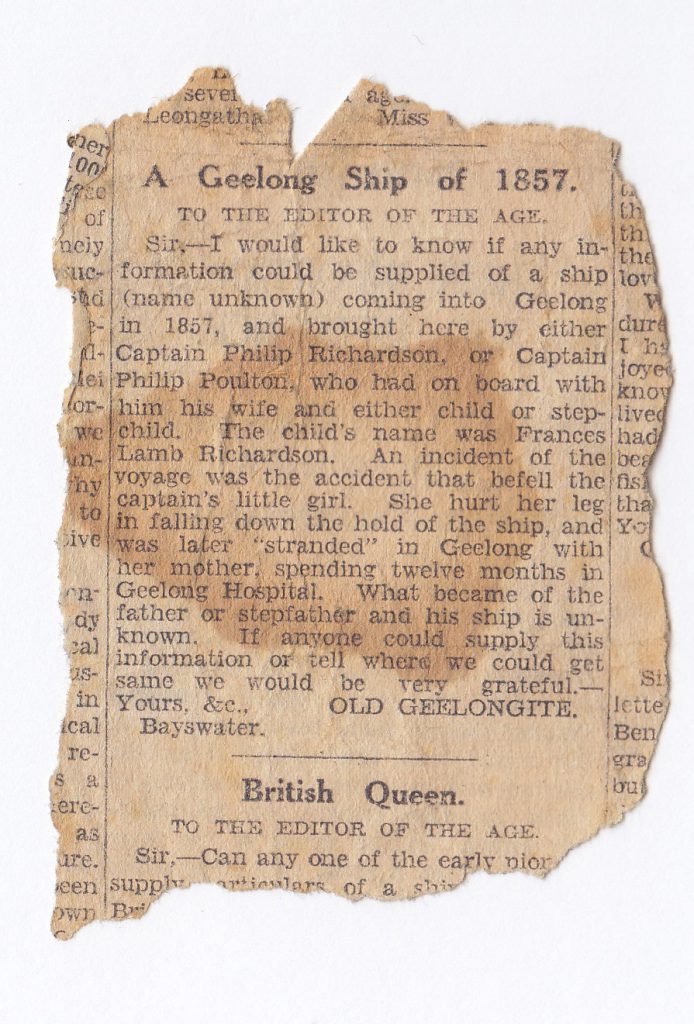 sever
Leongatha
age
Miss
A Geelong Ship of 1857.
TO THE EDITOR OF THE AGE.
Sir,—I would like to know if any in-
formation could be supplied of a ship
(name unknown) coming into Geelong
in 1857, and brought here by either
Captain Philip Richardson, or Captain
Philip Poulton, who had on board with
him his wife and either child or step-
child. The child's name was Frances
Lamb Richardson. An incident of the
voyage was the accident that befell the
captain's little girl. She hurt her leg
in falling down the hold of the ship, and
was later "stranded" in Geelong with
her mother, spending twelve months in
Geelong Hospital. What became of the
father or stepfather and his ship is un-
known. If anyone could supply this
information or tell where we could get
same we would be very grateful.—
Yours. &c., OLD GEELONGITE.
Bayswater.
British Queen.
TO THE EDITOR OF THE AGE.
Sir,—Can any one of the early pior
supply particulars of a ship
Bri
of
nely
suc-
we
to
dy
cal
us-
in
ical
re-
s a
ere-
as
ure.
een
own
th
th
the
lov
W
dure
I ha
joyed
know
lived
had
bea
fish
tha
Yo
Si
lette
Ben
gra
bu